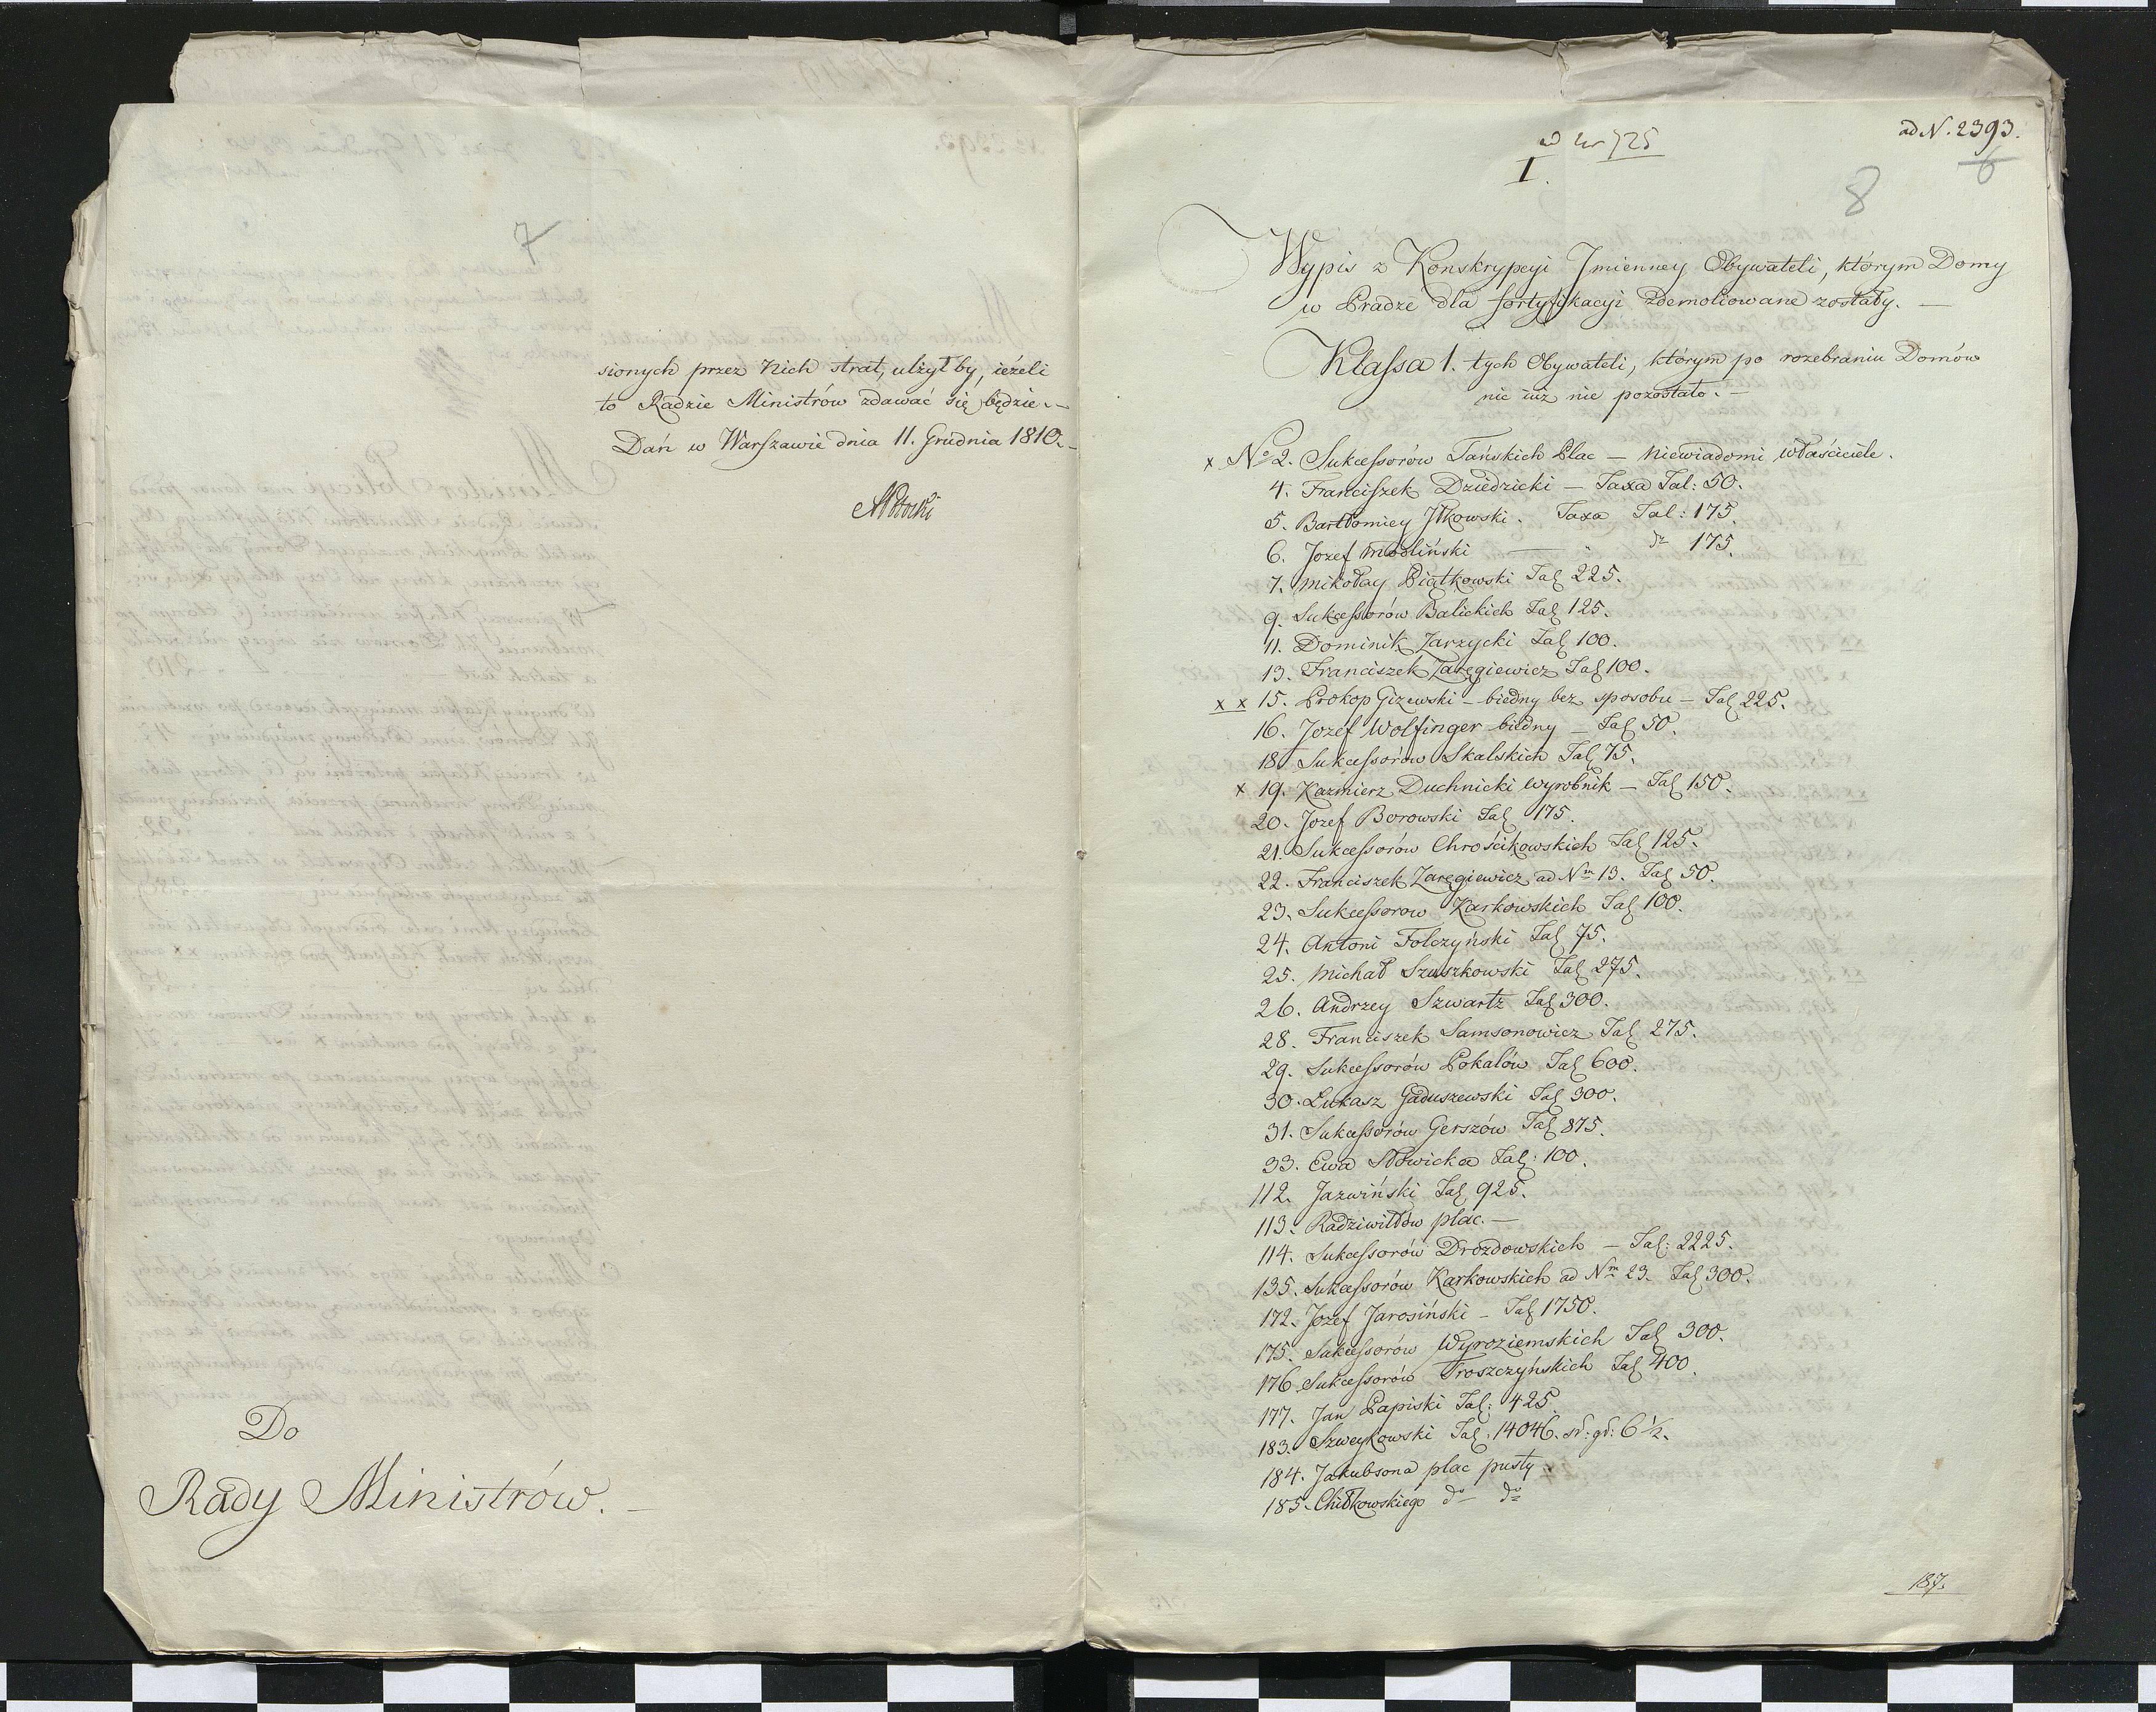 7
sionych przez Nich strat, ulżył by, ieżeli
to Radzie Ministrów zdawać się będzie. —
Dań w Warszawie dnia 11. Grudnia 1810. —
Do
Rady Ministrów. —
ad N. 2393.
725
I.
6
8
Wypis z Konskrypcyi Jmienney Obywateli, którym Domy
w Pradze dla fortyfikacyi zdemoliowane zostały. —
Klassa 1. tych Obywateli, którym po rozebraniu Domów
nic iuż nie pozostało. —
x No 2. Sukcessorów Tańskich Plac — Niewiadomi właściciele.
4. Franciszek Dziedzicki — Taxa Tal: 50.
5. Bartłomiey Jłkowski. Taxa Tal: 175.
6. Jozef Modliński — " do 175.
7. Mikołay Piątkowski Tal 225.
9. Sukcessorów Balickich Tal 125.
11. Dominik Zarzycki Tal 100.
13. Franciszek Zaręgiewicz Tal 100.
x x 15. Prokop Gizewski — biedny bez sposobu — Tal 225.
16. Jozef Wolfinger biedny — Tal 50.
18. Sukcessorów Skalskich Tal 75.
x 19. Kazmierz Duchnicki wyrobnik — Tal 150.
20. Jozef Borowski Tal 175.
21. Sukcessorów Chrościkowskich Tal 125.
22. Franciszek Zaręgiewicz ad Nm 13. Tal 50.
23. Sukcessorow Karkowskich Tal 100.
24. Antoni Folczyński Tal 75.
25. Michał Szuszkowski Tal 275.
26. Andrzey Szwartz Tal 300.
28. Franciszek Samsonowicz Tal 275.
29. Sukcessorów Pokalów Tal 600.
30. Łukasz Gaduszewski Tal 300.
31. Sukcessorów Gerszów Tal 875.
33. Ewa Nowicka Tal: 100.
112. Jazwiński Tal 925.
113. Radziwiłłów plac. —
114. Sukcessorów Drozdowskich — Tal: 2225.
135. Sukcessorów Karkowskich ad Nm 23. Tal 300.
172. Jozef Jarosiński — Tal 1750.
175. Sukcessorów Wyroziemskich Tal 300.
176. Sukcessorów Troszczyńskich Tal 400.
177. Jan Papiski Tal: 425.
183. Szweykowski Tal. 14046. sr: gr: 6 1/2.
184. Jakubsona plac pusty.
185. Chiłkowskiego do — do
187.